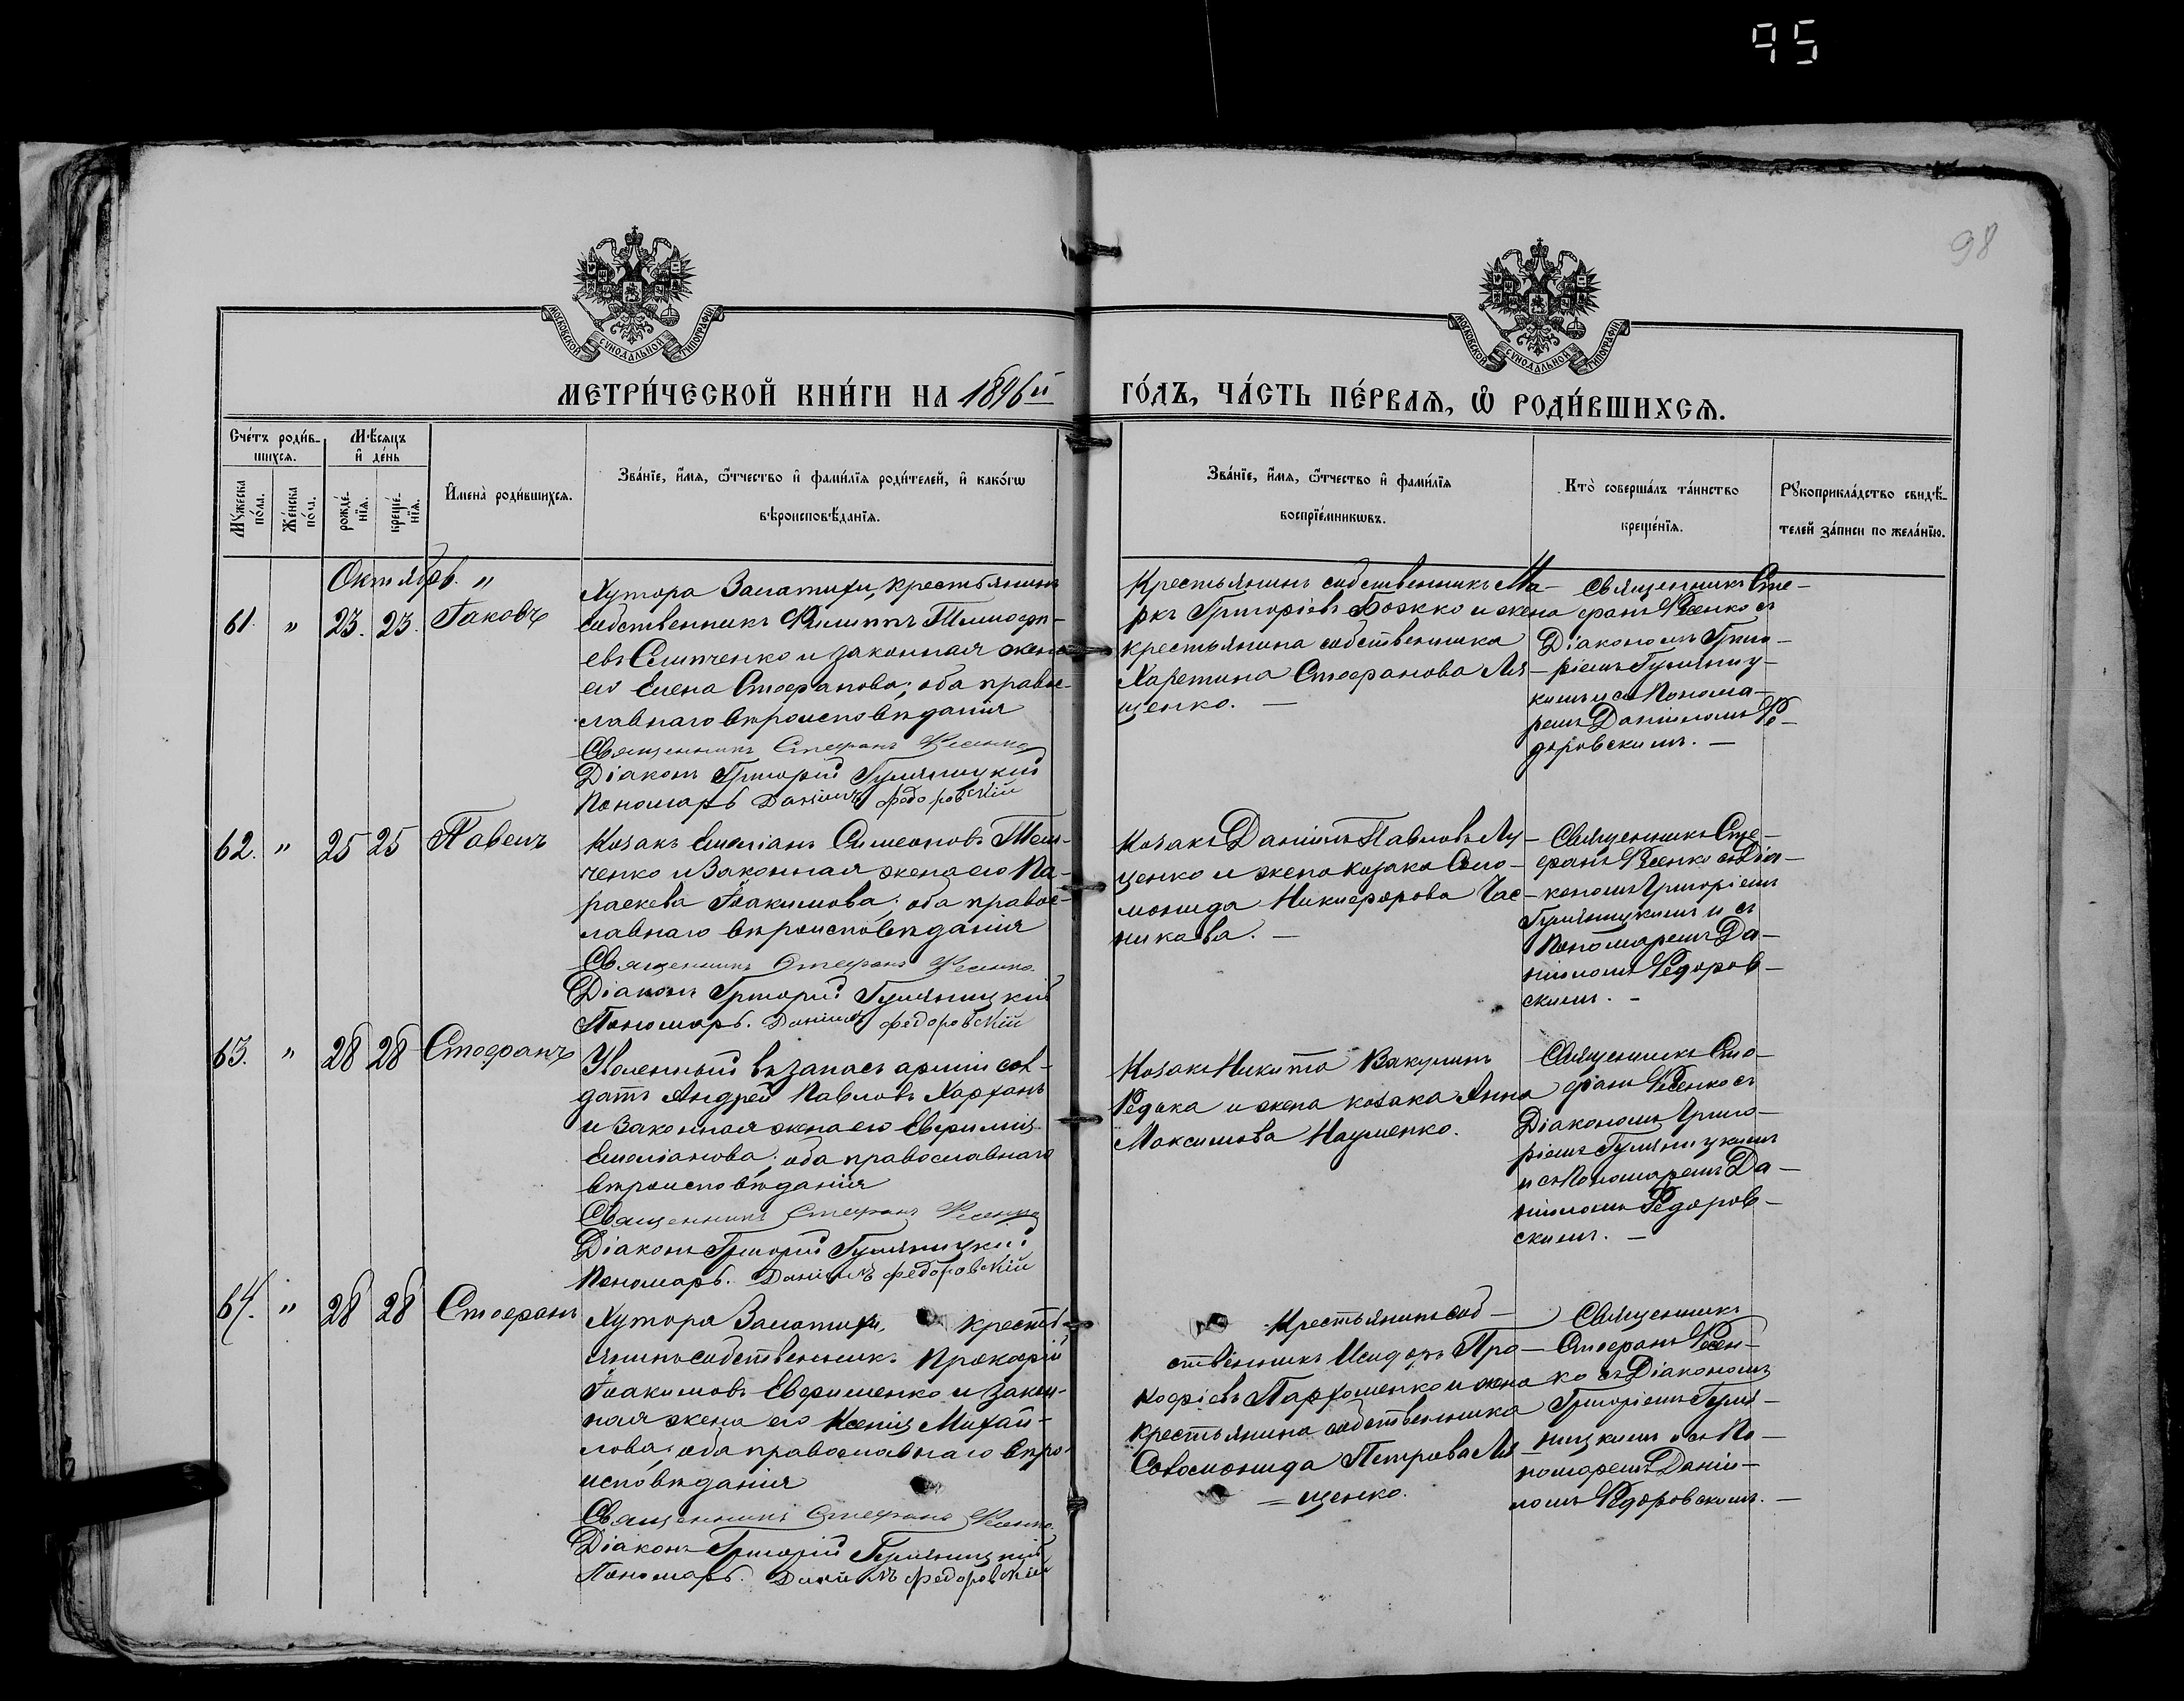 95
98
МОСКОВСКОЙ СУНОДАЛЬНОЙ ТИПОГРАФІИ
МОСКОВСКОЙ СУНОДАЛЬНОЙ ТИПОГРАФІИ
МЕТРИ́ЧЕСКОЙ КНИ́ГИ НА 1896й
ГО́ДЪ, ЧА́СТЬ ПЕ́РВАЯ, Ѡ҆ РОДИ́ВШИХСЯ.
Сче́тъ роди́в-
шихся.
Мѣ́сяцъ
и҆ де́нь
Мꙋ́жеска по́ла.
Же́нска по́ла.
рожде́-
нїя.
креще́-
нїя.
И҆мена̀ роди́вшихся.
Зва́нїе, и҆́мя, ѻ҆́тчество и҆ фами́лїя роди́телей, и҆ како́гѡ
вѣроисповѣ́данїя.
Зва́нїе, и҆́мя, ѻ҆́тчество и҆ фами́лїя
воспрїе́мникѡвъ.
Кто̀ соверша́лъ та́инство
креще́нїя.
Рꙋкоприкла́дство свидѣ́-
телей за́писи по жела́нїю.
Октябрь. "
61. " 23. 23. Іаковъ
Хутора Заматихи, крестьянинъ
собственникъ Филиппъ Тимоѳе-
евъ Слипченко и законная жена
его Елена Стефанова; оба правос-
лавнаго вѣроисповѣданія
Священникъ Стефанъ Ѳесенко
Діаконъ Григорій Гуляницкій
Пономарь Даніилъ Федоровскій
Крестьянинъ собственникъ Ма-
ркъ Григоріевъ Божко и жена
крестьянина собственника
Харитина Стефанова Ля-
щенко. —
Священникъ Сте-
фанъ Ѳесенко съ
Діакономъ Григо-
ріемъ Гуляниц-
кимъ и съ Понома-
ремъ Даніиломъ Ѳе-
доровскимъ. —
62. " 25 25 Павелъ
Козакъ Емеліанъ Симеоновъ Тем-
ченко и Законная жена его Па-
раскева Іоакимова; оба правос-
лавнаго вѣроисповѣданія
Священникъ Стефанъ Ѳесенко
Діаконъ Григорій Гуляницкій
Пономарь. Даніилъ Федоровскій
Козакъ Даніилъ Павловъ Лу-
ценко и жена козака Соло-
монида Никифорова Час-
никова. —
Священникъ Сте-
фанъ Ѳесенко съ Діа-
кономъ Григоріемъ
Гуляницкимъ и съ
Пономаремъ Да-
ніиломъ Ѳедоров-
скимъ. —
63. " 28 28 Стефанъ
Уволенный въ запасъ арміи сол-
датъ Андрей Павловъ Харханъ
и Законная жена его Евфимія
Емеліанова; оба православнаго
вѣроисповѣданія
Священникъ Стефанъ Ѳесенко
Діаконъ Григорій Гуляницкій
Пономарь. Даніилъ Федоровскій
Козакъ Никита Вакулинъ
Редька и жена козака Анна
Максимова Науменко.
Священникъ Сте-
фанъ Ѳесенко съ
Діакономъ Григо-
ріемъ Гуляницкимъ
и съ Пономаремъ Да-
ніиломъ Ѳедоров-
скимъ. —
64. " 28 28 Стефанъ
Хутора Заматихи, кресть-
янинъ собственникъ Прокофій
Іоакимовъ Евфименко и закон-
ная жена его Ксенія Михай-
лова; оба православнаго вѣро-
исповѣданія
Священникъ Стефанъ Ѳесенко.
Діаконъ Григорій Гуляницкій
Пономарь. Даніилъ Федоровскій
Крестьянинъ соб-
ственникъ Исидоръ Про-
кофіевъ Пархоменко и жена
крестьянина собственника
Соломонида Петрова Ля-
щенко.
Священникъ
Стефанъ Ѳесен-
ко съ Діакономъ
Григоріемъ Гуля-
ницкимъ и съ По-
номаремъ Даніи-
ломъ Ѳедоровскимъ. —